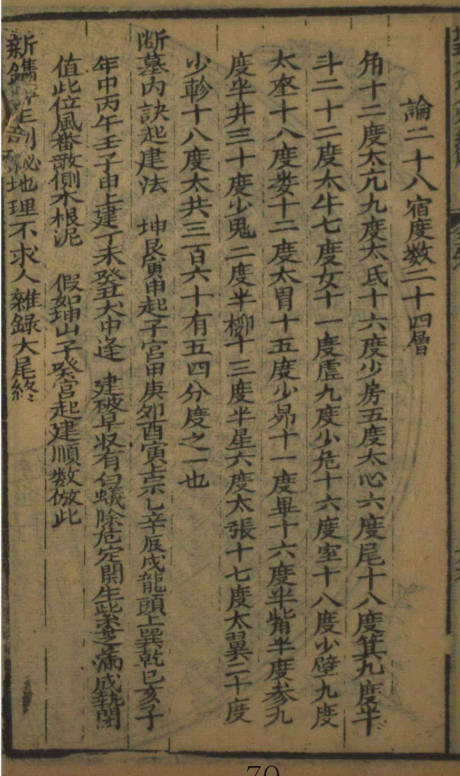 論二十八宿度数二十四層
角十二度太亢九度太氐十六度少房五度太心六度尾十八度箕九度半
斗二十二度太牛七度女十一度虛九度少危十六度室十八度少壁九度
太奎十八度娄十二度太胃十五度少昴十一度畢十六度半觜半度参九
度半井三十度少鬼二度半柳十三度半星六度太張十七度太翼二十度
少軫十八度太共三百六十有五四分度之一也
断墓内訣起建法 坤艮寅申起子宮甲庚夘酉寅上宗乙辛辰戌龍頭上巽乾巳亥子
年中丙午壬子申上建丁未癸丑犬中逢 建破早収有白蟻除危定開生滿成執閉
值此位風番散側木根泥 假如坤山子癸宮起建順数倣此
新鐫 地理不求人雜錄大尾終
70